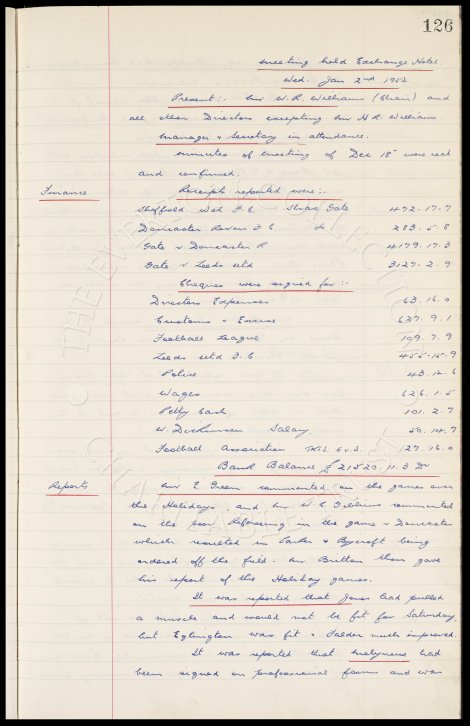 126
meeting held Exchange Hotel.
Wed. Jan 2nd 1952
Present:- Mr W. R. Williams (Chair) and
all other Directors excepting Mr H R. Williams.
Manager & Secretary in attendance.
Minutes of meeting of Dec 18th were read
and confirmed.
Finance
Receipts reported were:-
Sheffield Wed F.C. Share Gate 472.17.7
Doncaster Rovers F.C. do 283.5.8
Gate v Doncaster R 4179.17.3
Gate v. Leeds Utd 3127.2.9
Cheques were signed for:-
Directors Expenses 63.16.0
Customs & Excise 627.9.1
Football League 199.7.9
Leeds Utd F.C 455.15.9
Police 43.12.6
Wages 626.1.5
Petty Cash 101.2.7
W Dickinson Salary 50.14.7
Football Association 27.16.0
Bank Balance £21520.11.3 Dr
Reports
Mr E. Green commented on the games over
the Holidays, and Mr W. C. Gibbins commented
on the poor Refereeing in the game v Doncaster
which resulted in Parker & Rycroft being
ordered off the field. Mr Britton then gave
his report of the Holiday games.
It was reported that Jones had pulled
a muscle and would not be fit for Saturday,
but Eglington was fit & Falder much improved.
It was reported that Molyneux had
been signed on professional forms and was
THE EVERTON COLLECTION